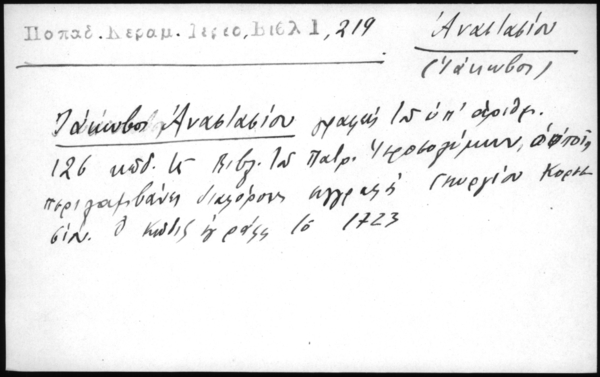 Παπαδ. Κεραμ. Ιεροσ, Βιβλ 1, 219
Ἀναστασίου
(Ἰάκωβος)
Ἰάκωβος Ἀναστασίου γραφεὺς τοῦ ὑπ' ἀριθμ.
126 κώδ. τῆς Βιβλ. τοῦ Πατρ. Ἱεροσολύμων, ὁ ὁποῖος
περιλαμβάνει διαφόρους συγγραφὰς Γεωργίου Κορεσ
σίου. Ὁ κῶδιξ ἐγράφη τὸ 1723